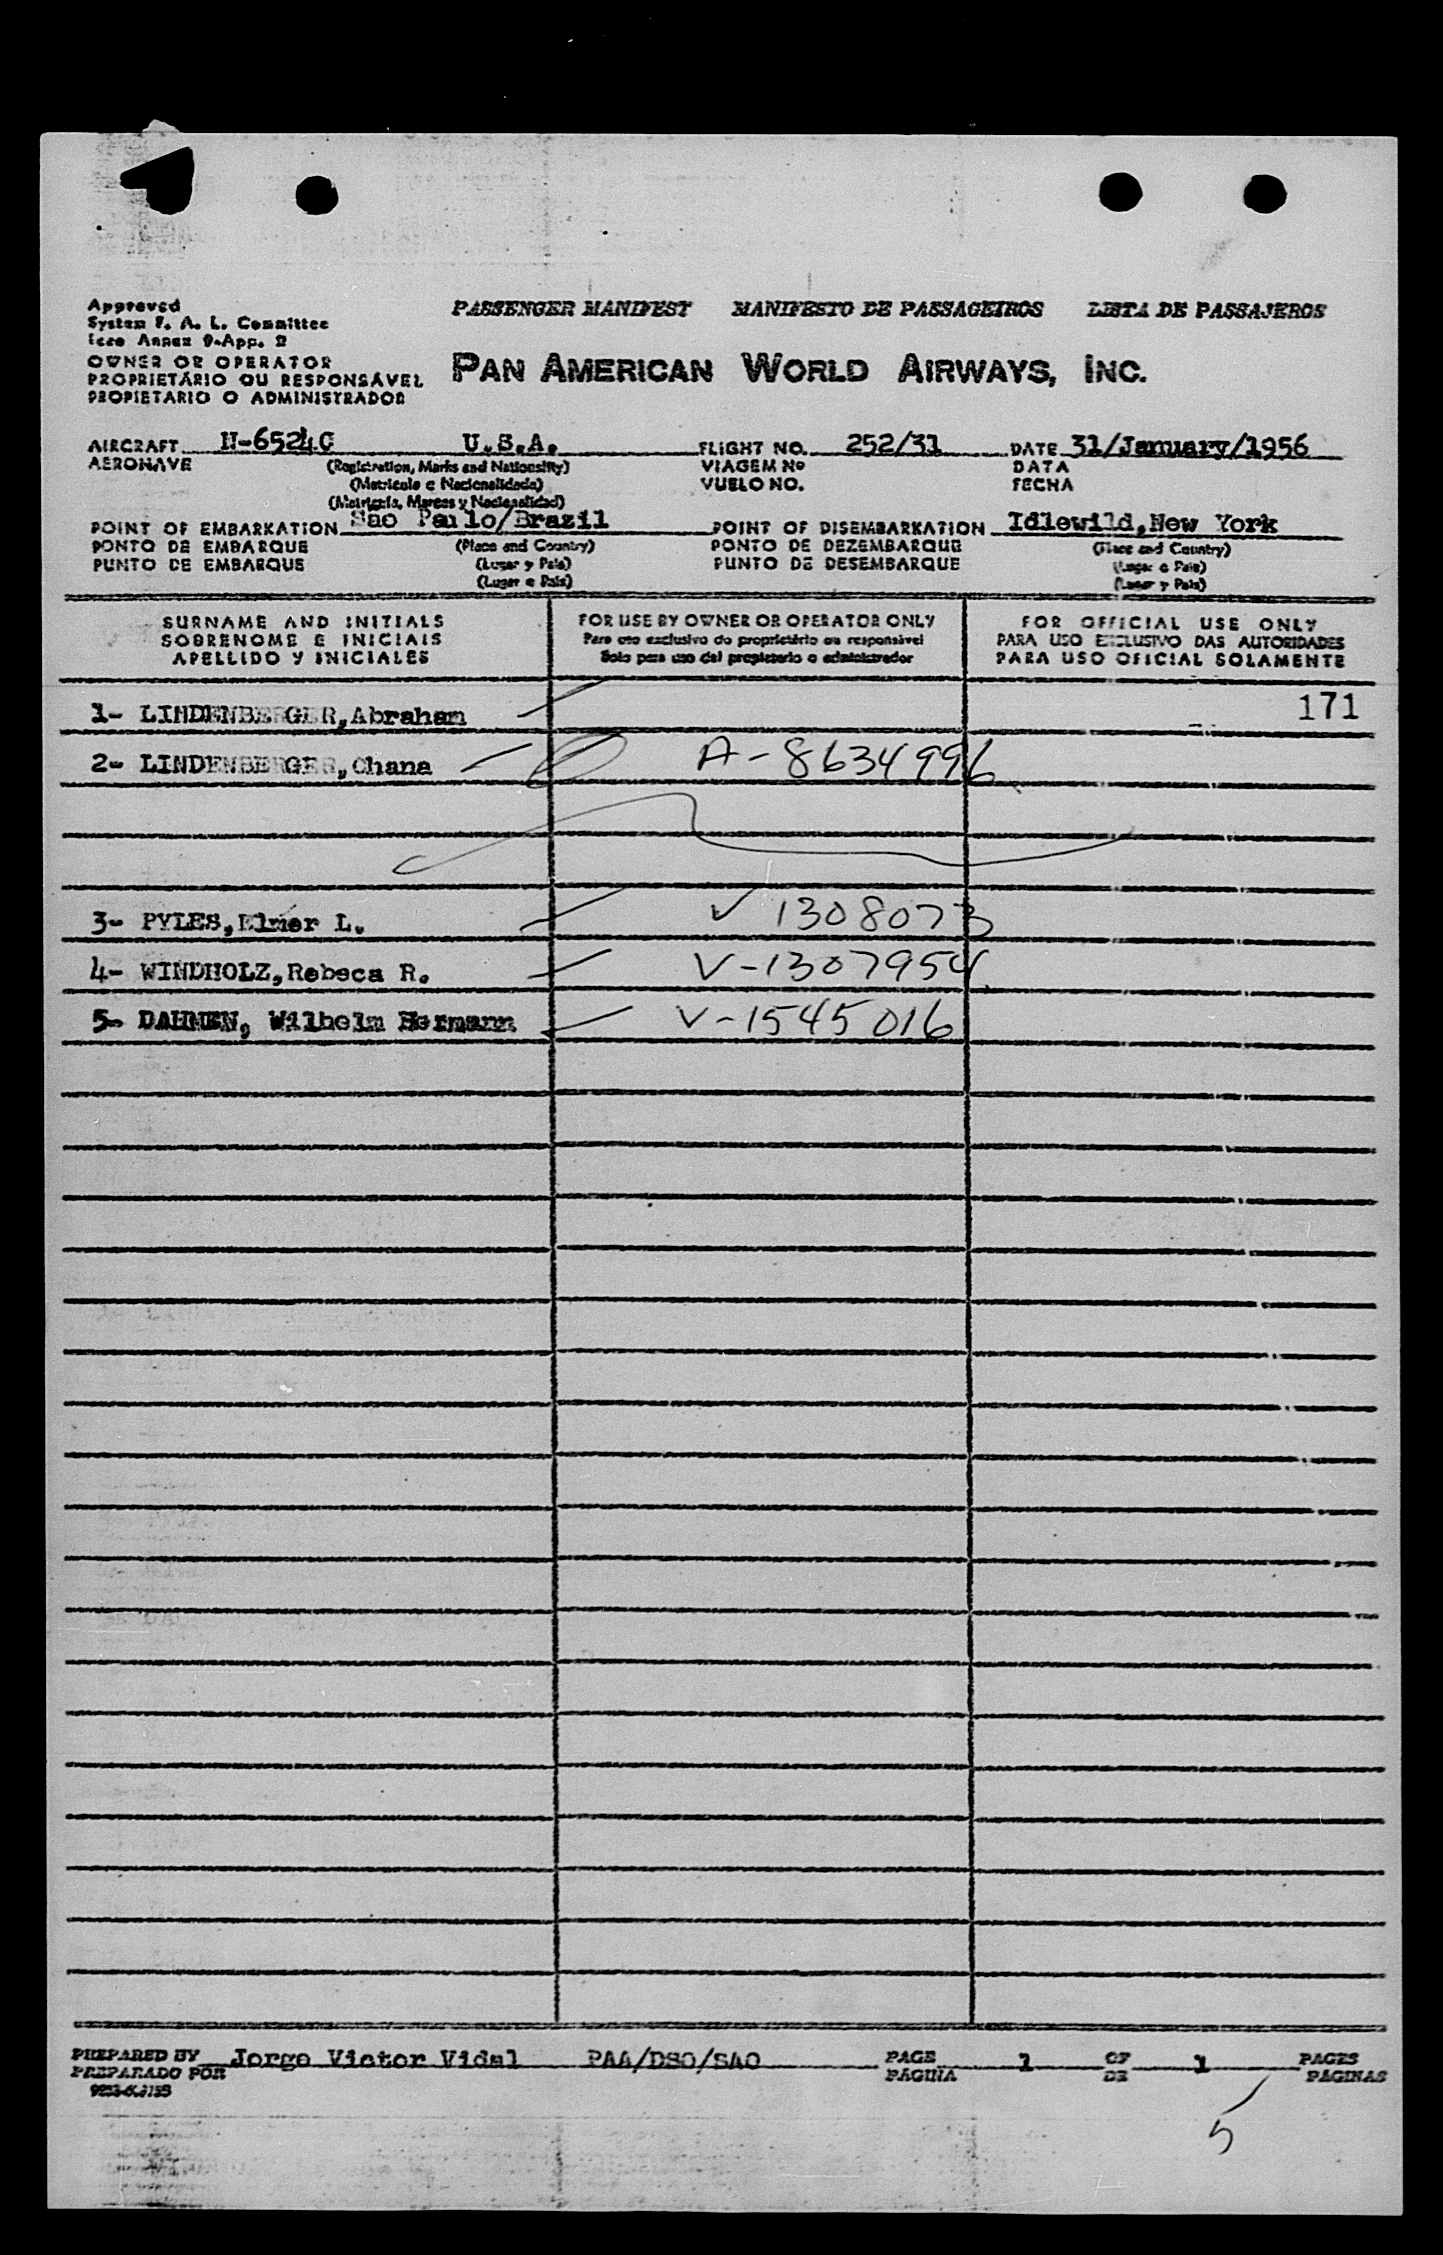 Approved
System F. A. L. Committee
Icao Annex 9-App. 2
PASSENGER MANIFEST MANIFESTO DE PASSAGEIROS LISTA DE PASSAJEROS
OWNER OR OPERATOR
PROPRIETÁRIO OU RESPONSÁVEL
PROPIETARIO O ADMINISTRADOR
PAN AMERICAN WORLD AIRWAYS, INC.
AIRCRAFT N-6524C U.S.A. FLIGHT NO. 252/31 DATE 31/January/1956
AERONAVE (Registration, Marks and Nationality) VIAGEM Nº DATA
(Matricula e Nacionalidade) VUELO NO. FECHA
(Matricula, Marcas y Nacionalidad)
POINT OF EMBARKATION Sao Paulo/Brazil POINT OF DISEMBARKATION Idlewild,New York
PONTO DE EMBARQUE (Place and Country) PONTO DE DEZEMBARQUE (Place and Country)
PUNTO DE EMBARQUE (Lugar y Pais) PUNTO DE DESEMBARQUE (Lugar e Pais)
(Lugar e Pais) (Lugar y Pais)
SURNAME AND INITIALS FOR USE BY OWNER OR OPERATOR ONLY FOR OFFICIAL USE ONLY
SOBRENOME E INICIAIS Para uso exclusivo do proprietério ou responsável PARA USO EXCLUSIVO DAS AUTORIDADES
APELLIDO Y INICIALES Solo para uso del propietario o administrador PARA USO OFICIAL SOLAMENTE
1- LINDENBERGER,Abraham 171
2- LINDENBERGER,Chana A-8634996
3- PYLES,Elmer L. V 1308073
4- WINDHOLZ,Rebeca R. V-1307954
5- DAHMEN, Wilhelm Hermann V-1545016
PREPARED BY Jorge Victor Vidal PAA/DSO/SAO PAGE 1 OF 1 PAGES
PREPARADO POR PAGINA DE PAGINAS
5